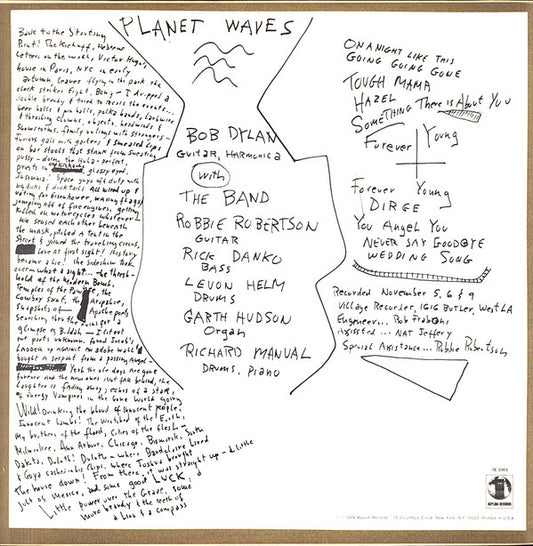 Back to the Starting
Point! The Kickoff, Hebrew
Letters on the walls, Victor Hugo's
house in Paris, NYC in early
autumn, leaves flying in the park, the
clock strikes Eight, Bong - I dropped a
double brandy & tried to recall the events...
beer halls & pin balls, polka bands, barbwire
& thrashing clowns, objects, headwinds &
snowstorms, family outings with strangers -
Furious gals with garters & smeared lips
on bar stools that stank from sweating
pussy - doing the Hula - perfect,
priests in overhauls, glassy eyed,
Insomnia! Space guys off duty with
big dicks & ducktails All wired up &
voting for Eisenhower, waving flags &
jumping off of fire engines, getting
killed on motorcycles whatever -
We sensed each other beneath
the mask, pitched a tent in the
Street & joined the traveling circus,
Love at first sight! History
became a Lie! the sideshow took
over - what a sight... the thresh-
hold of the Modern Bomb,
Temples of the Pawnee, the
Cowboy Saint, the Arapahoe,
Snapshots of Apache poets
searching thru the ruins for a
glimpse of Buddah - I lit out
for parts unknown, found Jacob's
Ladder up against an adobe wall &
bought a serpent from a passing angel -
Yeah the ole days are gone
forever and the new ones aint far behind, the
Laughter is fading away, echos of a star,
of Energy Vampires in the Gone World going
Wild! Drinking the blood of innocent people,
Innocent Lambs! The Wretched of the Earth,
My brothers of the flood, Cities of the flesh -
Milwaukee, Ann Arbor, Chicago, Bismarck, South
Dakota, Duluth! Duluth - where Baudelaire Lived
& Goya cashed in his Chips, where Joshua brought
the house down! From there, it was straight up - a little
jolt of Mexico, and some good LUCK, a
Little power over the Grave, some
more brandy & the teeth of
a Lion & a compass
PLANET WAVES
BOB DYLAN
GUITAR, HARMONICA
with
THE BAND
ROBBIE ROBERTSON
GUITAR
RICK DANKO
BASS
LEVON HELM
DRUMS
GARTH HUDSON
Organ
RICHARD MANUAL
DRUMS, PIANO
ON A NIGHT LIKE THIS
GOING GOING GONE
TOUGH MAMA
HAZEL
SOMETHING There is About You
Forever Young
Forever Young
DIRGE
You Angel You
NEVER SAY GOODBYE
WEDDING SONG
Recorded November 5, 6 & 9
Village Recorder, 1616 Butler, West LA
Engeneer... Rob Fraboni
Assissted... NAT Jeffery
Special Assistance... Robbie Robertson
7E-1003
ASYLUM RECORDS